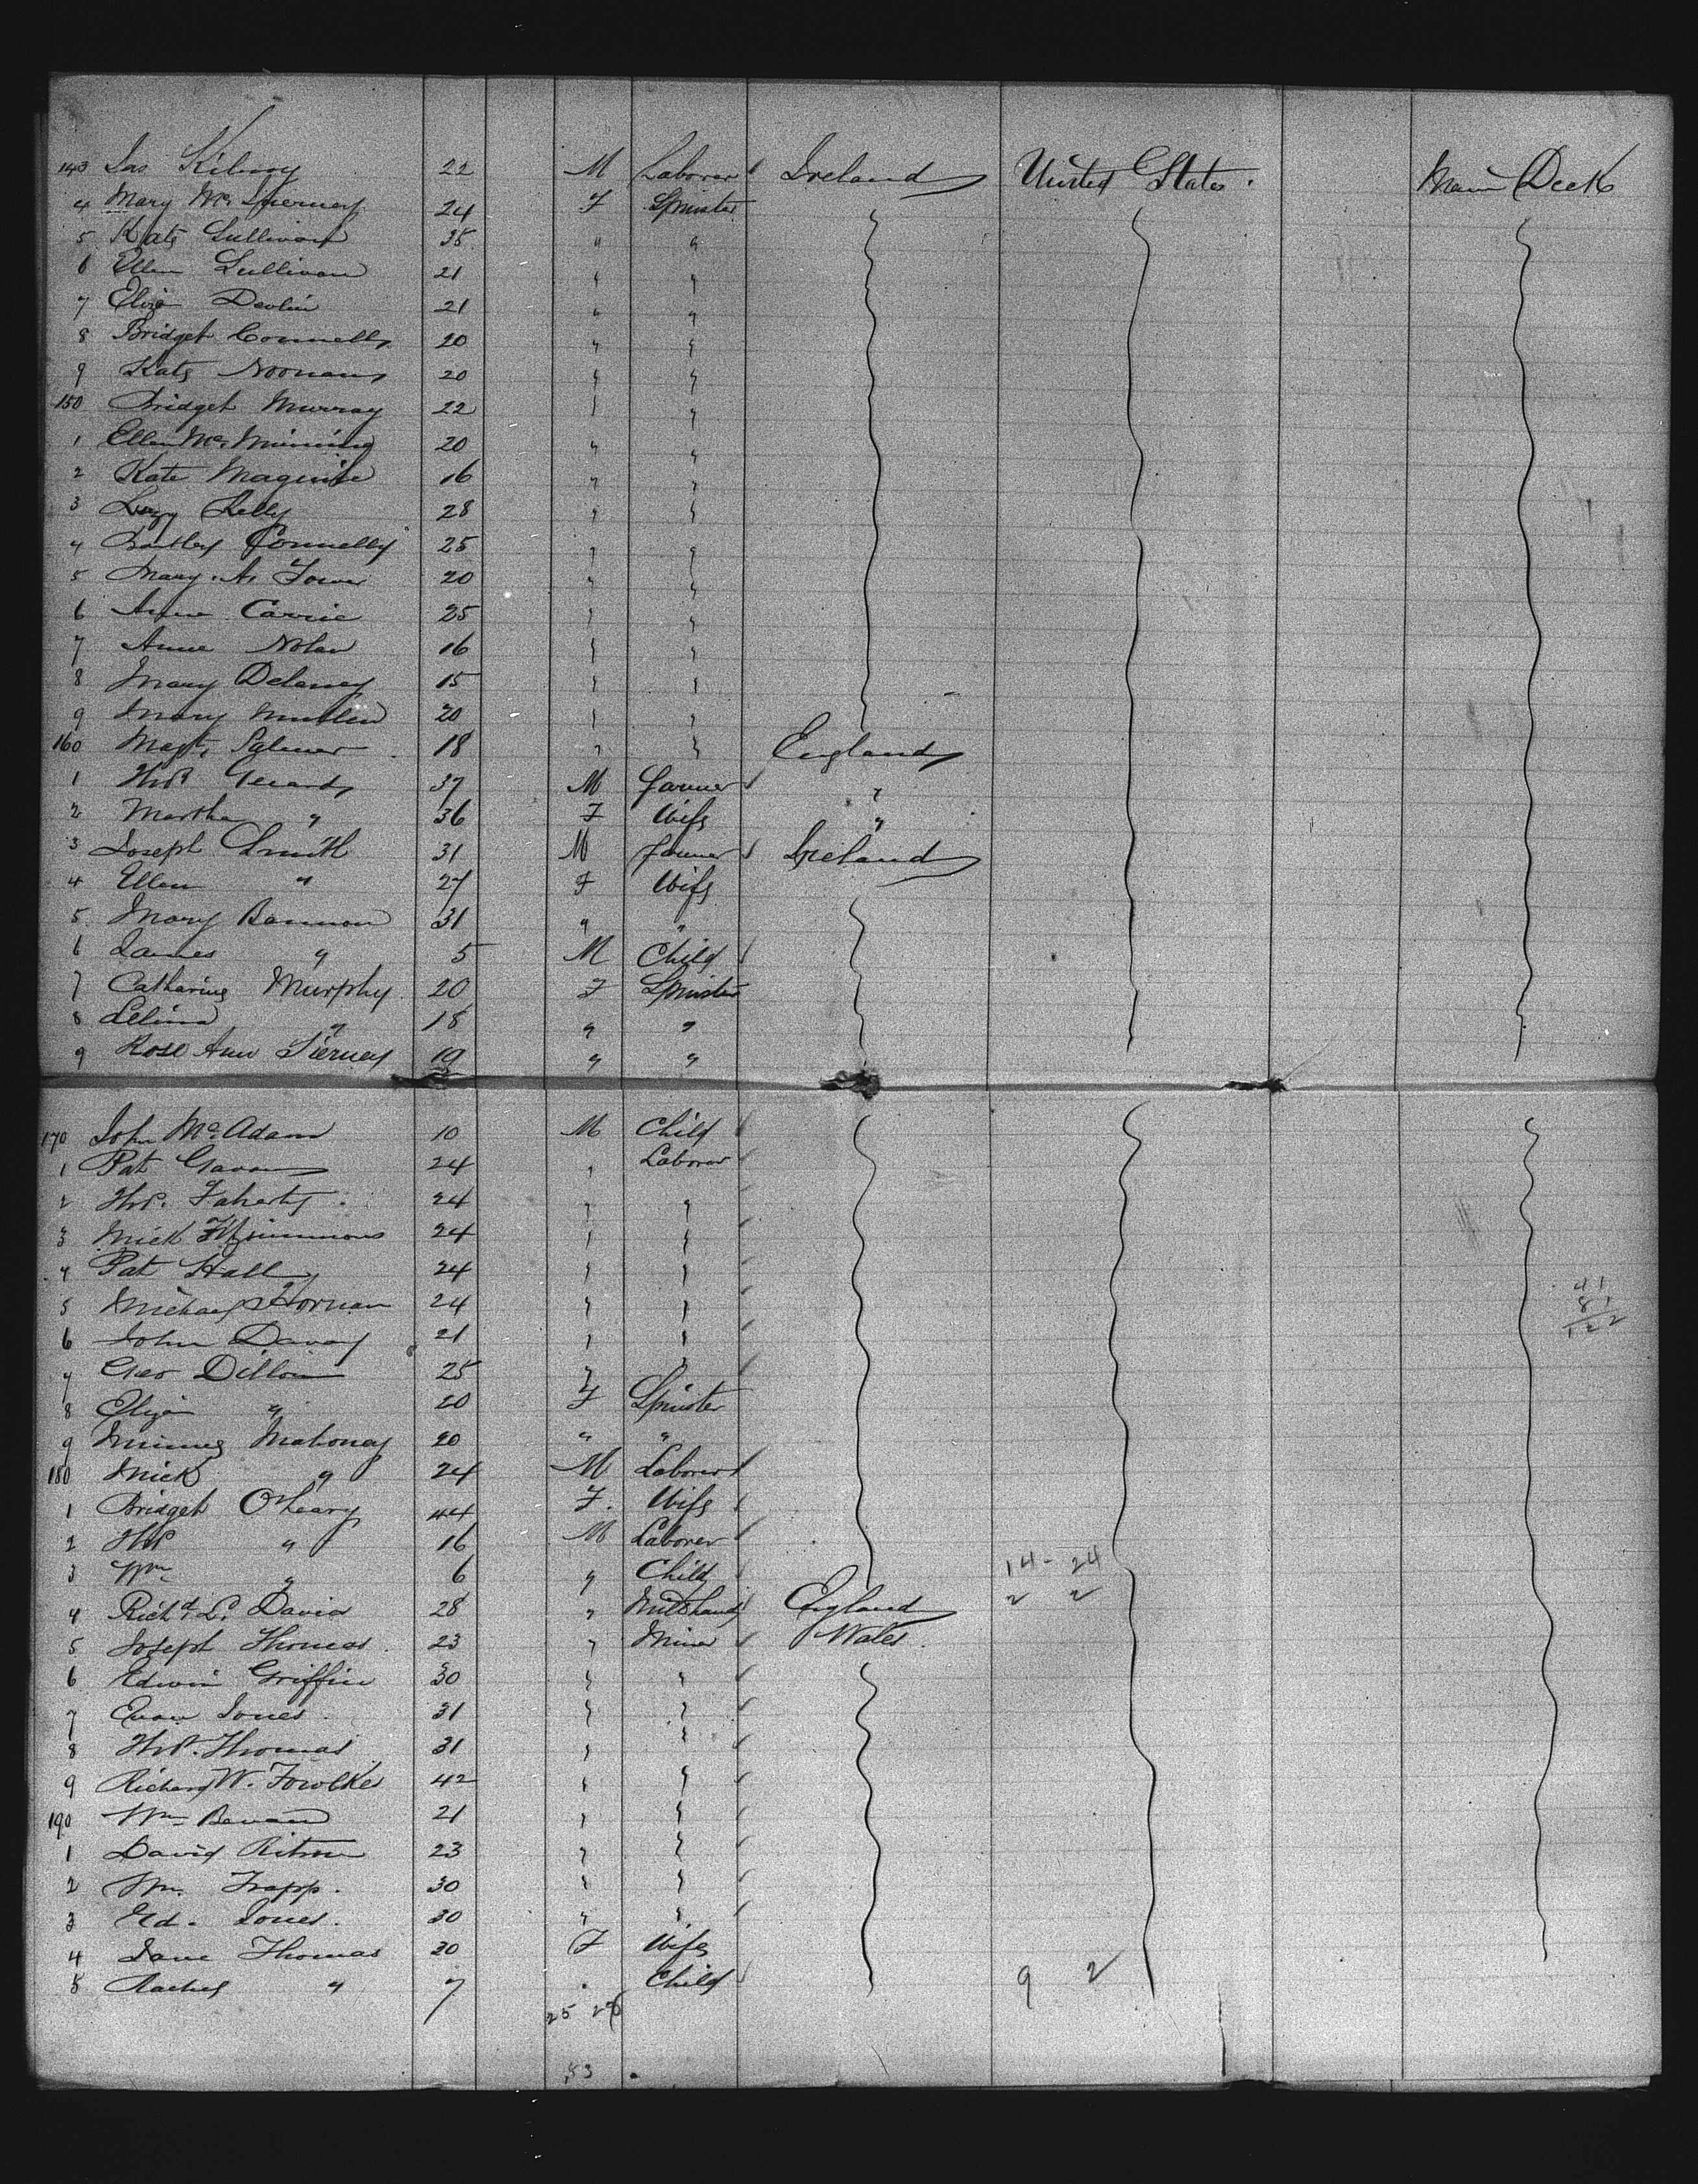 143 Jas Kilroy 22 M Laborer Ireland United States. Main Deck
4 Mary Mc 24 F Spinster
5 Kate Sullivan 35 " "
6 Ellen Sullivan 21 " "
7 Eliza Devlin 21 " "
8 Bridget Connelly 20 " "
9 Kate Noonan 20 " "
150 Bridget Murray 22 " "
1 Ellen Mc 20 " "
2 Kate Maguire 16 " "
3 Kelly 28 " "
4 Bartley Connelly 25 " "
5 Mary A. 20 " "
6 Anne Carrie 25 " "
7 Anne Nolan 16 " "
8 Mary Delaney 15 " "
9 Mary 20 " "
160 Magt. 18 " " England
1 Thos 37 M Farmer "
2 Martha " 36 F Wife "
3 Joseph Smith 31 M Farmer Ireland
4 Ellen " 27 F Wife
5 Mary Bannon 31 " "
6 James " 5 M Child
7 Catharine Murphy 20 F Spinster
8 Selina " 18 " "
9 Rose Ann Tierney 19 " "
170 John McAdam 10 M Child
1 Pat Gavan 24 " Laborer
2 Thos. Faherty 24 " "
3 Mick Fitzsimmons 24 " "
4 Pat Hall 24 " "
41
5 Michael 24 " "
81
6 John 21 " "
122
7 Geo Dillon 25 " "
8 Eliza " 20 F Spinster
9 Mahoney 20 " "
180 Mick " 24 M Laborer
1 Bridget O'Leary 44 F. Wife
2 Thos " 16 M Laborer
3 Wm " 6 " Child 14 - 24
4 Richd. L. David 28 " Millhand England 2 2
5 Joseph Thomas 23 " Miner Wales.
6 Edwin Griffin 30 " "
7 Evan Jones. 31 " "
8 Thos. Thomas 31 " "
9 Richard W. Fowlke 42 " "
190 Wm Bevan 21 " "
1 David 23 " "
2 Wm. Trapp. 30 " "
3 Ed. Jones. 30 " "
4 Jane Thomas 30 F Wife
5 Rachel " 7 " Child 9 2
25
83